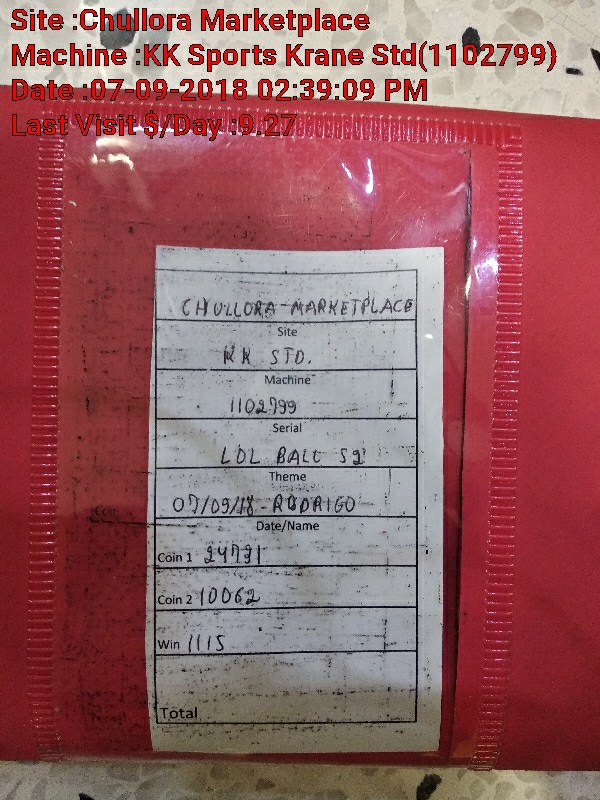 Site :Chullora Marketplace
Machine :KK Sports Krane Std(1102799)
Date :07-09-2018 02:39:09 PM
Last Visit $/Day :9.27
CHULLORA MARKETPLACE
Site
KK STD.
Machine
1102799
Serial
LOL BALL S2
Theme
07/09/18 - RODRIGO
Date/Name
Coin 1 24791
Coin 2 10062
Win 1115
Total